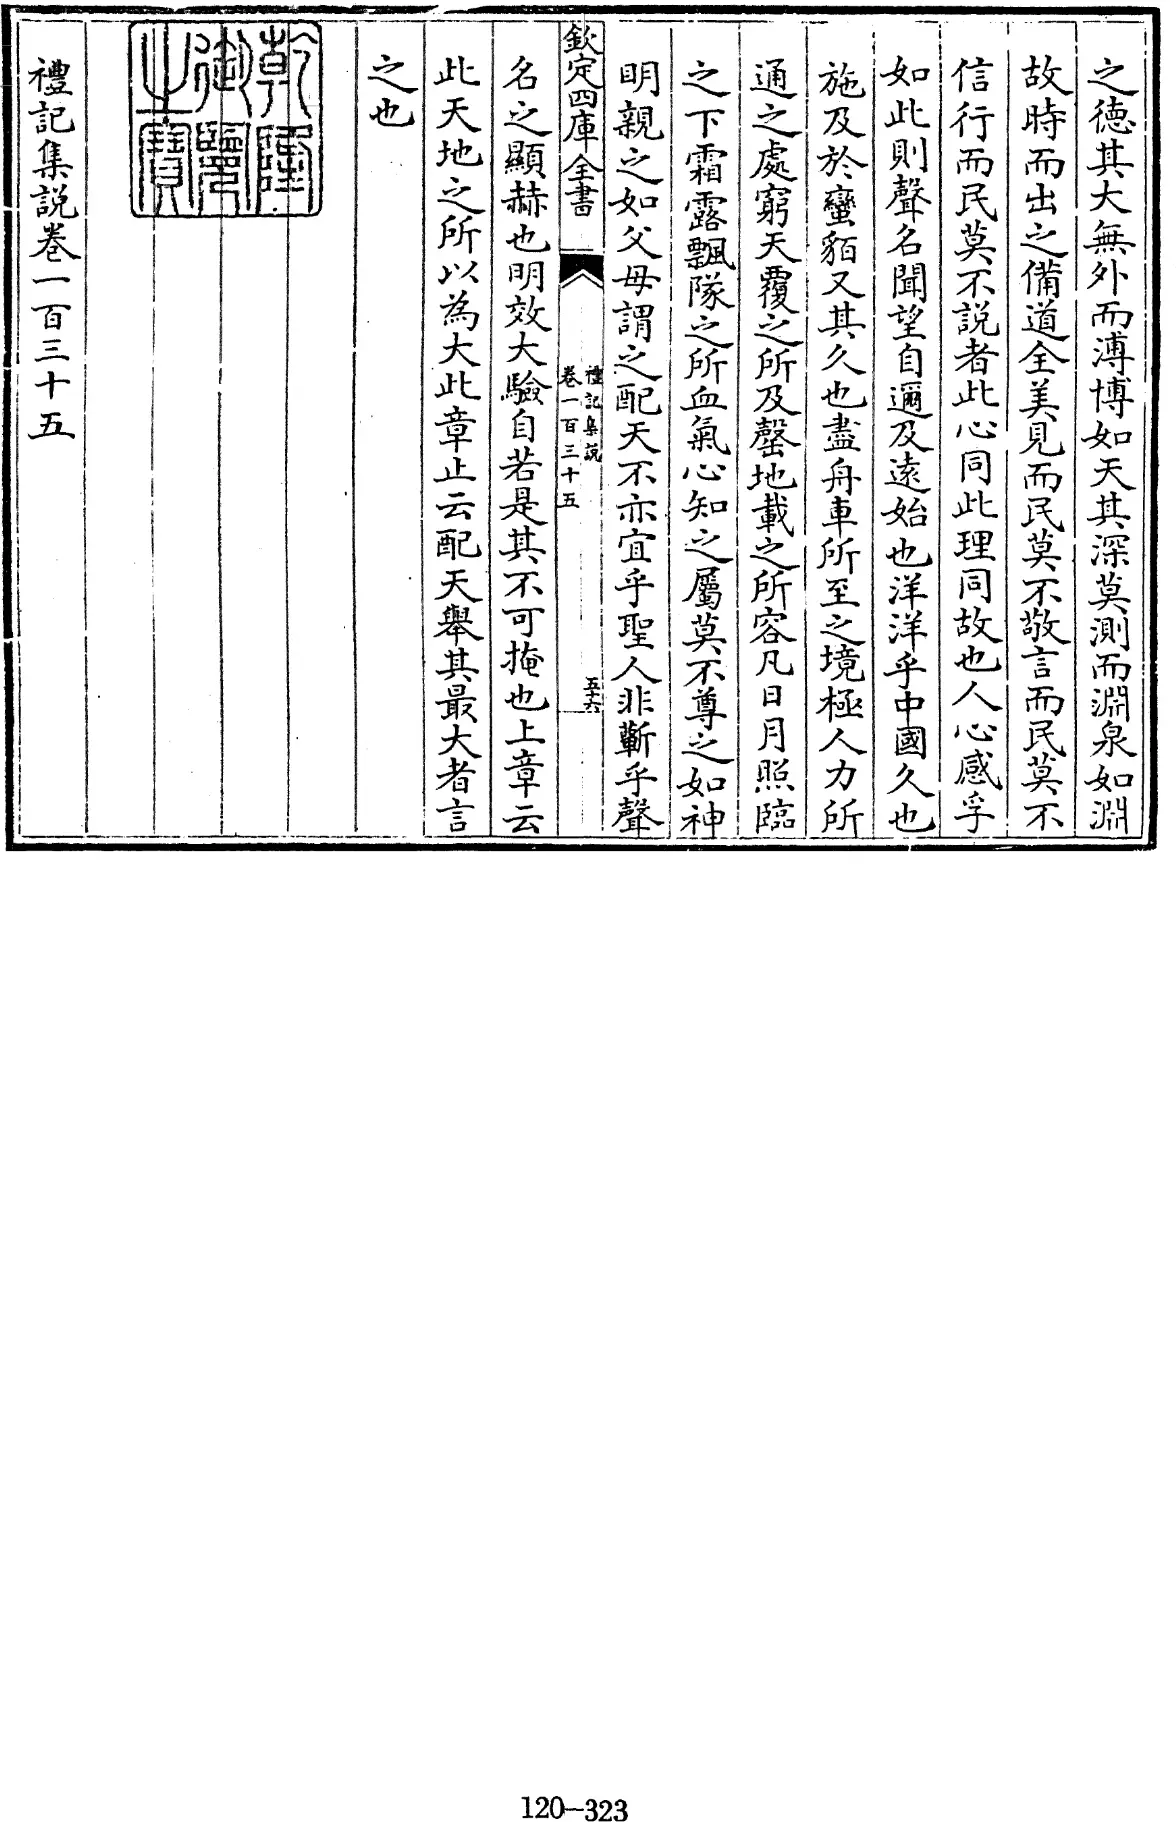 之德其大無外而溥博如天其深莫測而淵泉如淵
故時而出之備道全美見而民莫不敬言而民莫不
信行而民莫不説者此心同此理同故也人心感孚
如此則聲名聞望自邇及逺始也洋洋乎中國久也
施及於蠻貊又其久也盡舟車所至之境極人力所
通之處窮天覆之所及罄地載之所容凡日月照臨
之下霜露飄隊之所血氣心知之屬莫不尊之如神
明親之如父母謂之配天不亦宜乎聖人非蘄乎聲
欽定四庫全書
禮記集説
卷一百三十五
五十六
名之顯赫也明效大驗自若是其不可掩也上章云
此天地之所以為大此章止云配天舉其最大者言
之也
乾隆
御覽
之寶
禮記集説卷一百三十五
120-323